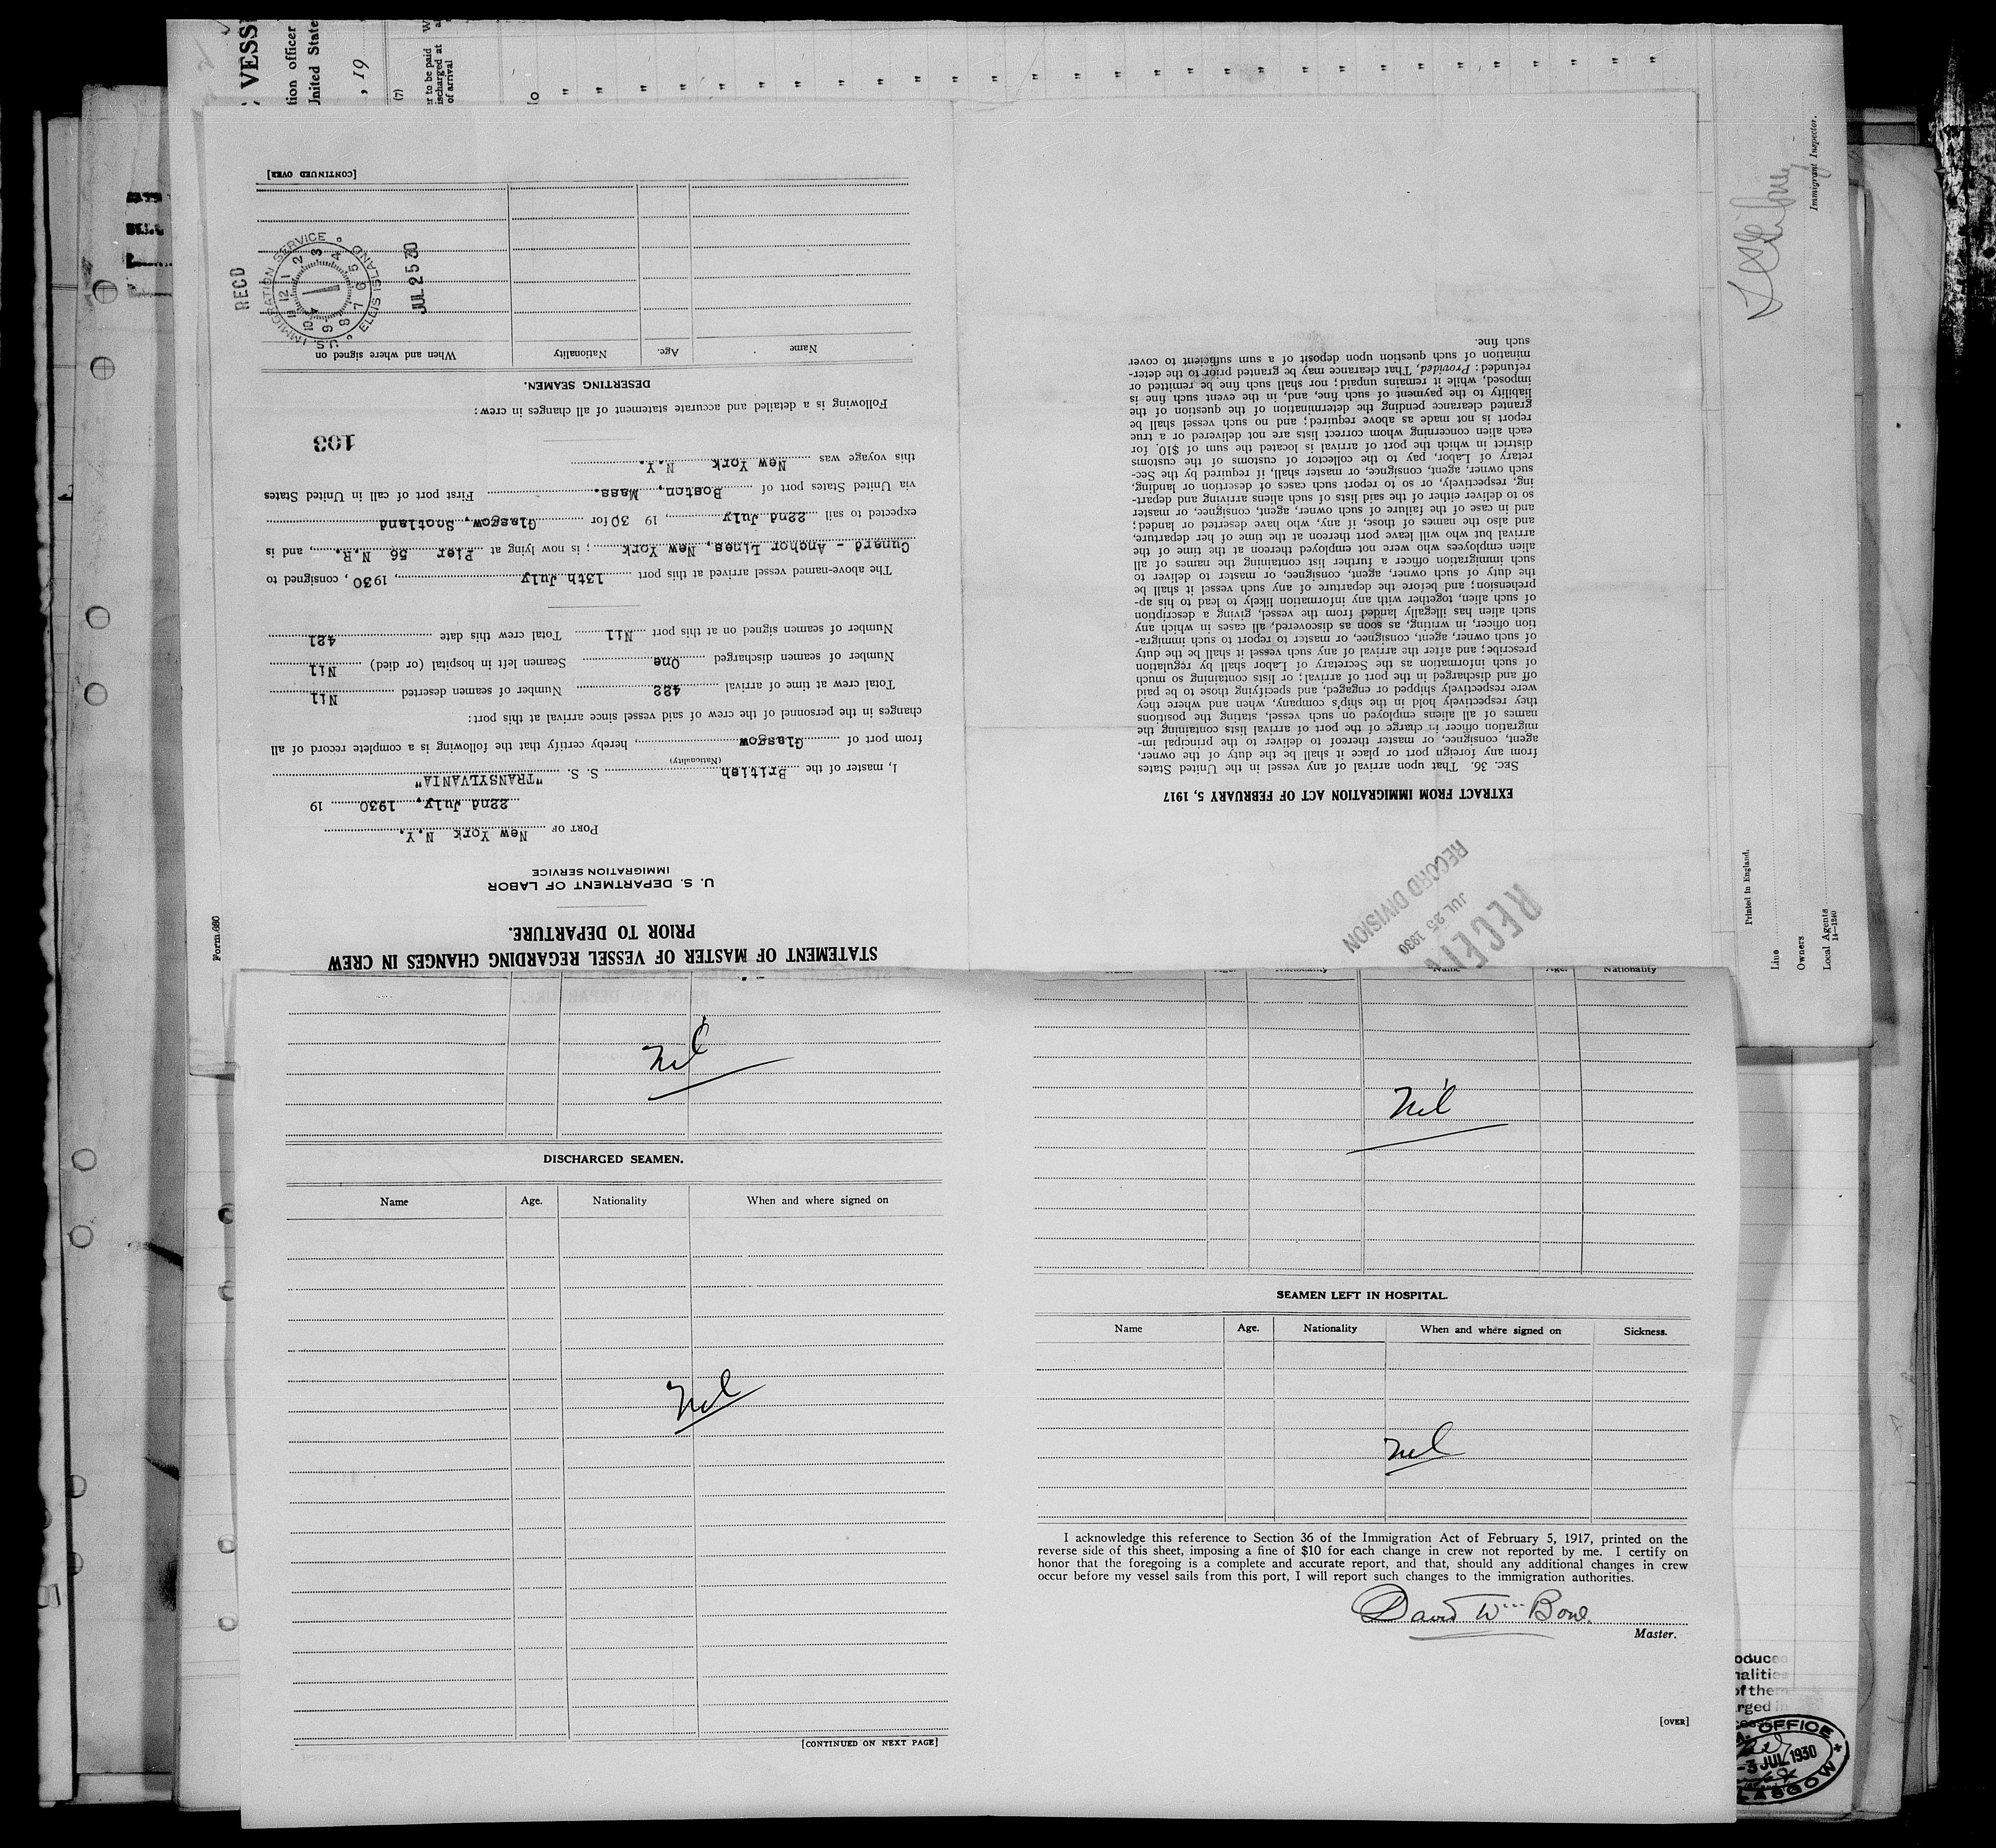 VESS
tion officer
United State
, 19
(7)
er to be paid
ischarged at
of arrival
STATEMENT OF MASTER OF VESSEL REGARDING CHANGES IN CREW
PRIOR TO DEPARTURE.
U. S. DEPARTMENT OF LABOR
IMMIGRATION SERVICE
PORT OF New York N.Y.
22nd July, 1930 19
I, master of the British S. S. "TRANSYLVANIA"
(Nationality)
from port of Glasgow, hereby certify that the following is a complete record of all
changes in the personnel of the crew of said vessel since arrival at this port:
Total crew at time of arrival 422 Number of seamen deserted Nil
Number of seamen discharged One Seamen left in hospital (or died) Nil
Number of seamen signed on at this port Nil Total crew this date 421
The above-named vessel arrived at this port 13th July, 1930, consigned to
Cunard - Anchor Lines, New York; is now lying at Pier 56 N.R., and is
expected to sail 22nd July, 1930 for Glasgow, Scotland
via United States port of Boston, Mass. First port of call in United States
this voyage was New York N.Y.
103
Following is a detailed and accurate statement of all changes in crew:
DESERTING SEAMEN.
Name Age. Nationality When and where signed on
RECD
U.S. IMMIGRATION SERVICE ELLIS ISLAND
1 2 3 4 5 6 7 8 9 10 11 12
JUL 25 30
[CONTINUED OVER]
Form 680
RECEIV
JUL 25 1930
RECORD DIVISION
EXTRACT FROM IMMIGRATION ACT OF FEBRUARY 5, 1917
SEC. 36. That upon arrival of any vessel in the United States
from any foreign port or place it shall be the duty of the owner,
agent, consignee, or master thereof to deliver to the principal im-
migration officer in charge of the port of arrival lists containing the
names of all aliens employed on such vessel, stating the positions
they respectively hold in the ship's company, when and where they
were respectively shipped or engaged, and specifying those to be paid
off and discharged in the port of arrival; or lists containing so much
of such information as the Secretary of Labor shall by regulation
prescribe; and after the arrival of any such vessel it shall be the duty
of such owner, agent, consignee, or master to report to such immigra-
tion officer, in writing, as soon as discovered, all cases in which any
such alien has illegally landed from the vessel, giving a description
of such alien, together with any information likely to lead to his ap-
prehension; and before the departure of any such vessel it shall be
the duty of such owner, agent, consignee, or master to deliver to
such immigration officer a further list containing the names of all
alien employees who were not employed thereon at the time of the
arrival but who will leave port thereon at the time of her departure,
and also the names of those, if any, who have deserted or landed;
and in case of the failure of such owner, agent, consignee, or master
so to deliver either of the said lists of such aliens arriving and depart-
ing, respectively, or so to report such cases of desertion or landing,
such owner, agent, consignee, or master shall, if required by the Sec-
retary of Labor, pay to the collector of customs of the customs
district in which the port of arrival is located the sum of $10. for
each alien concerning whom correct lists are not delivered or a true
report is not made as above required; and no such vessel shall be
granted clearance pending the determination of the question of the
liability to the payment of such fine, and, in the event such fine is
imposed, while it remains unpaid; nor shall such fine be remitted or
refunded: Provided, That clearance may be granted prior to the deter-
mination of such question upon deposit of a sum sufficient to cover
such fine.
Immigrant Inspector.
Printed in England.
Line
Owners
Local Agents
14—1240
Nil
DISCHARGED SEAMEN.
Name Age. Nationality When and where signed on
Nil
[CONTINUED ON NEXT PAGE]
Name Age. Nationality Name Age. Nationality
Nil
SEAMEN LEFT IN HOSPITAL.
Name Age. Nationality When and where signed on Sickness.
Nil
I acknowledge this reference to Section 36 of the Immigration Act of February 5, 1917, printed on the
reverse side of this sheet, imposing a fine of $10 for each change in crew not reported by me. I certify on
honor that the foregoing is a complete and accurate report, and that, should any additional changes in crew
occur before my vessel sails from this port, I will report such changes to the immigration authorities.
David Wm Bone
Master.
[OVER]
oduced
nalities
of them
rged in
OFFICE
-3 JUL 1930
GLASGOW